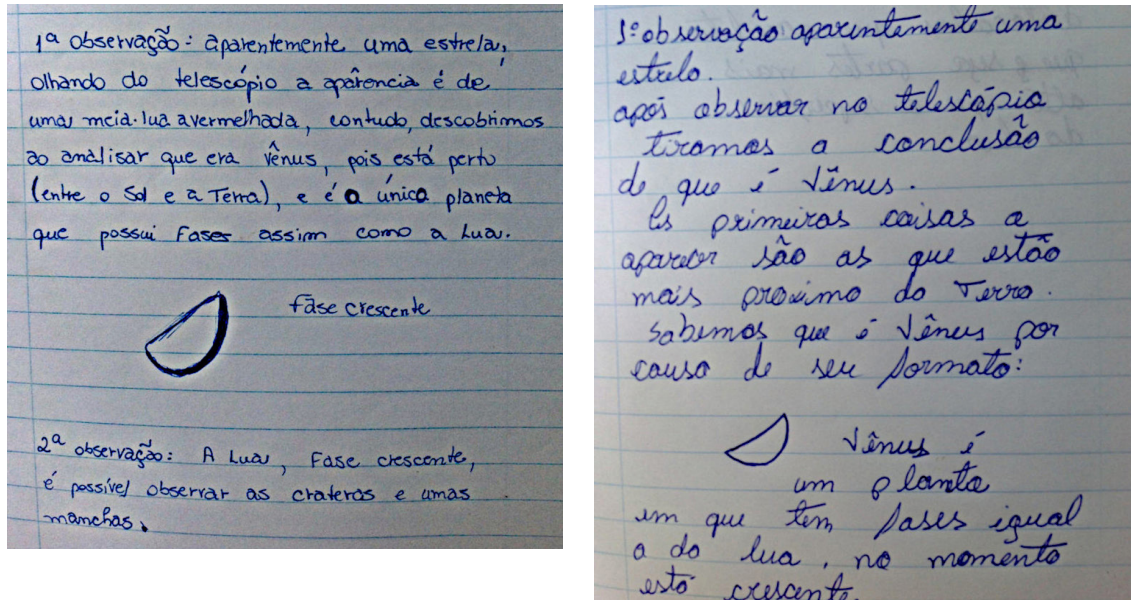 1ª observação: aparentemente uma estrela,
olhando do telescópio a aparência é de
uma meia-lua avermelhada, contudo, descobrimos
ao analisar que era Vênus, pois está perto
(entre o Sol e a Terra), e é a única planeta
que possui Fases assim como a Lua.
fase crescente
2ª observação: A Lua, Fase crescente,
é possível observar as crateras e umas
manchas.
1º observação aparentemente uma
estrela.
após observar no telescópio
tiramos a conclusão
de que é Vênus.
As primeiras coisas a
aparecer são as que estão
mais proximo do Terra.
Sabemos que é Vênus por
causa de seu formato:
Vênus é
um planta
em que tem fases igual
a da lua, no momento
está crescente.